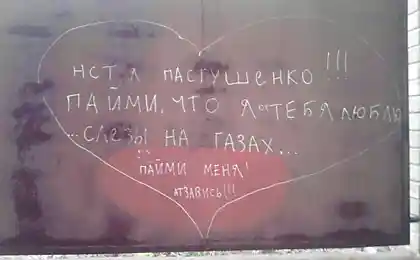 НСТЯ ПАСТУШЕНКО !!!
ПАЙМИ, ЧТО Я ТЕБЯ ЛЮБЛЮ
...СЛЕЗЫ НА ГАЗАХ...
ПАЙМИ МЕНЯ!
АТЗАВИСЬ!!!